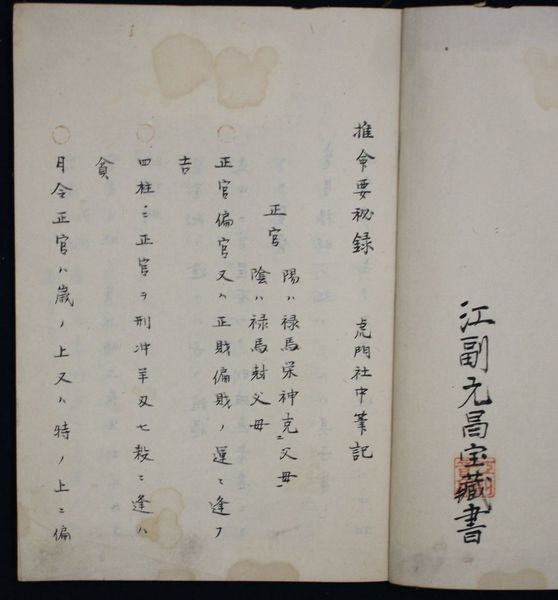 江副元昌宝蔵書
推命要秘録　虎門社中筆記
正官
陽ハ禄馬栄神克ニ父母
陰ハ禄馬財父母
正官偏官又ハ正財偏財ノ運ニ逢フ
吉
四柱ニ正官ヲ刑冲羊刃七殺ニ逢ハ
貧
月令正官ハ歳ノ上又ハ特ノ上ニ偏